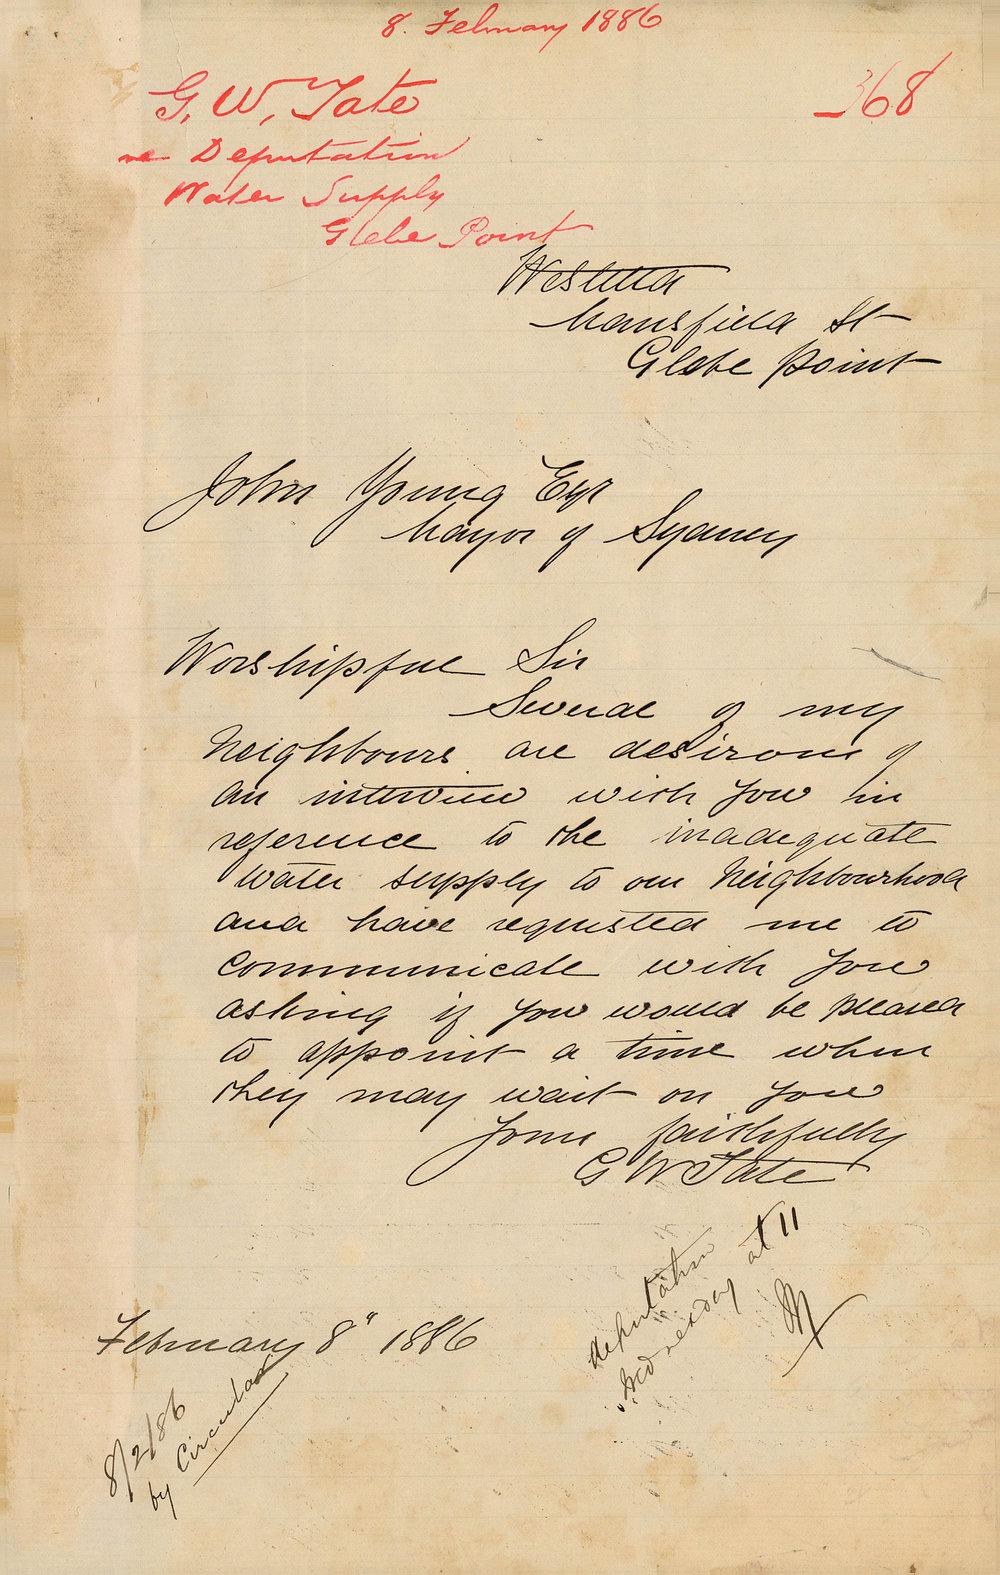 8. February 1886
G. W. Tate
368
re Deputation
Water Supply
Glebe Point
Mansfield St
Glebe Point
John Young Esqr
Mayor of Sydney
Worshipful Sir
Several of my
Neighbours are desirous of
an interview with you in
reference to the inadequate
water supply to our Neighbourhood
and have requested me to
communicate with you
asking if you would be pleased
to appoint a time when
they may wait on you
Yours faithfully
G W Tate
deputation
Wednesday at 11
February 8" 1886
8/2/86
by Circular